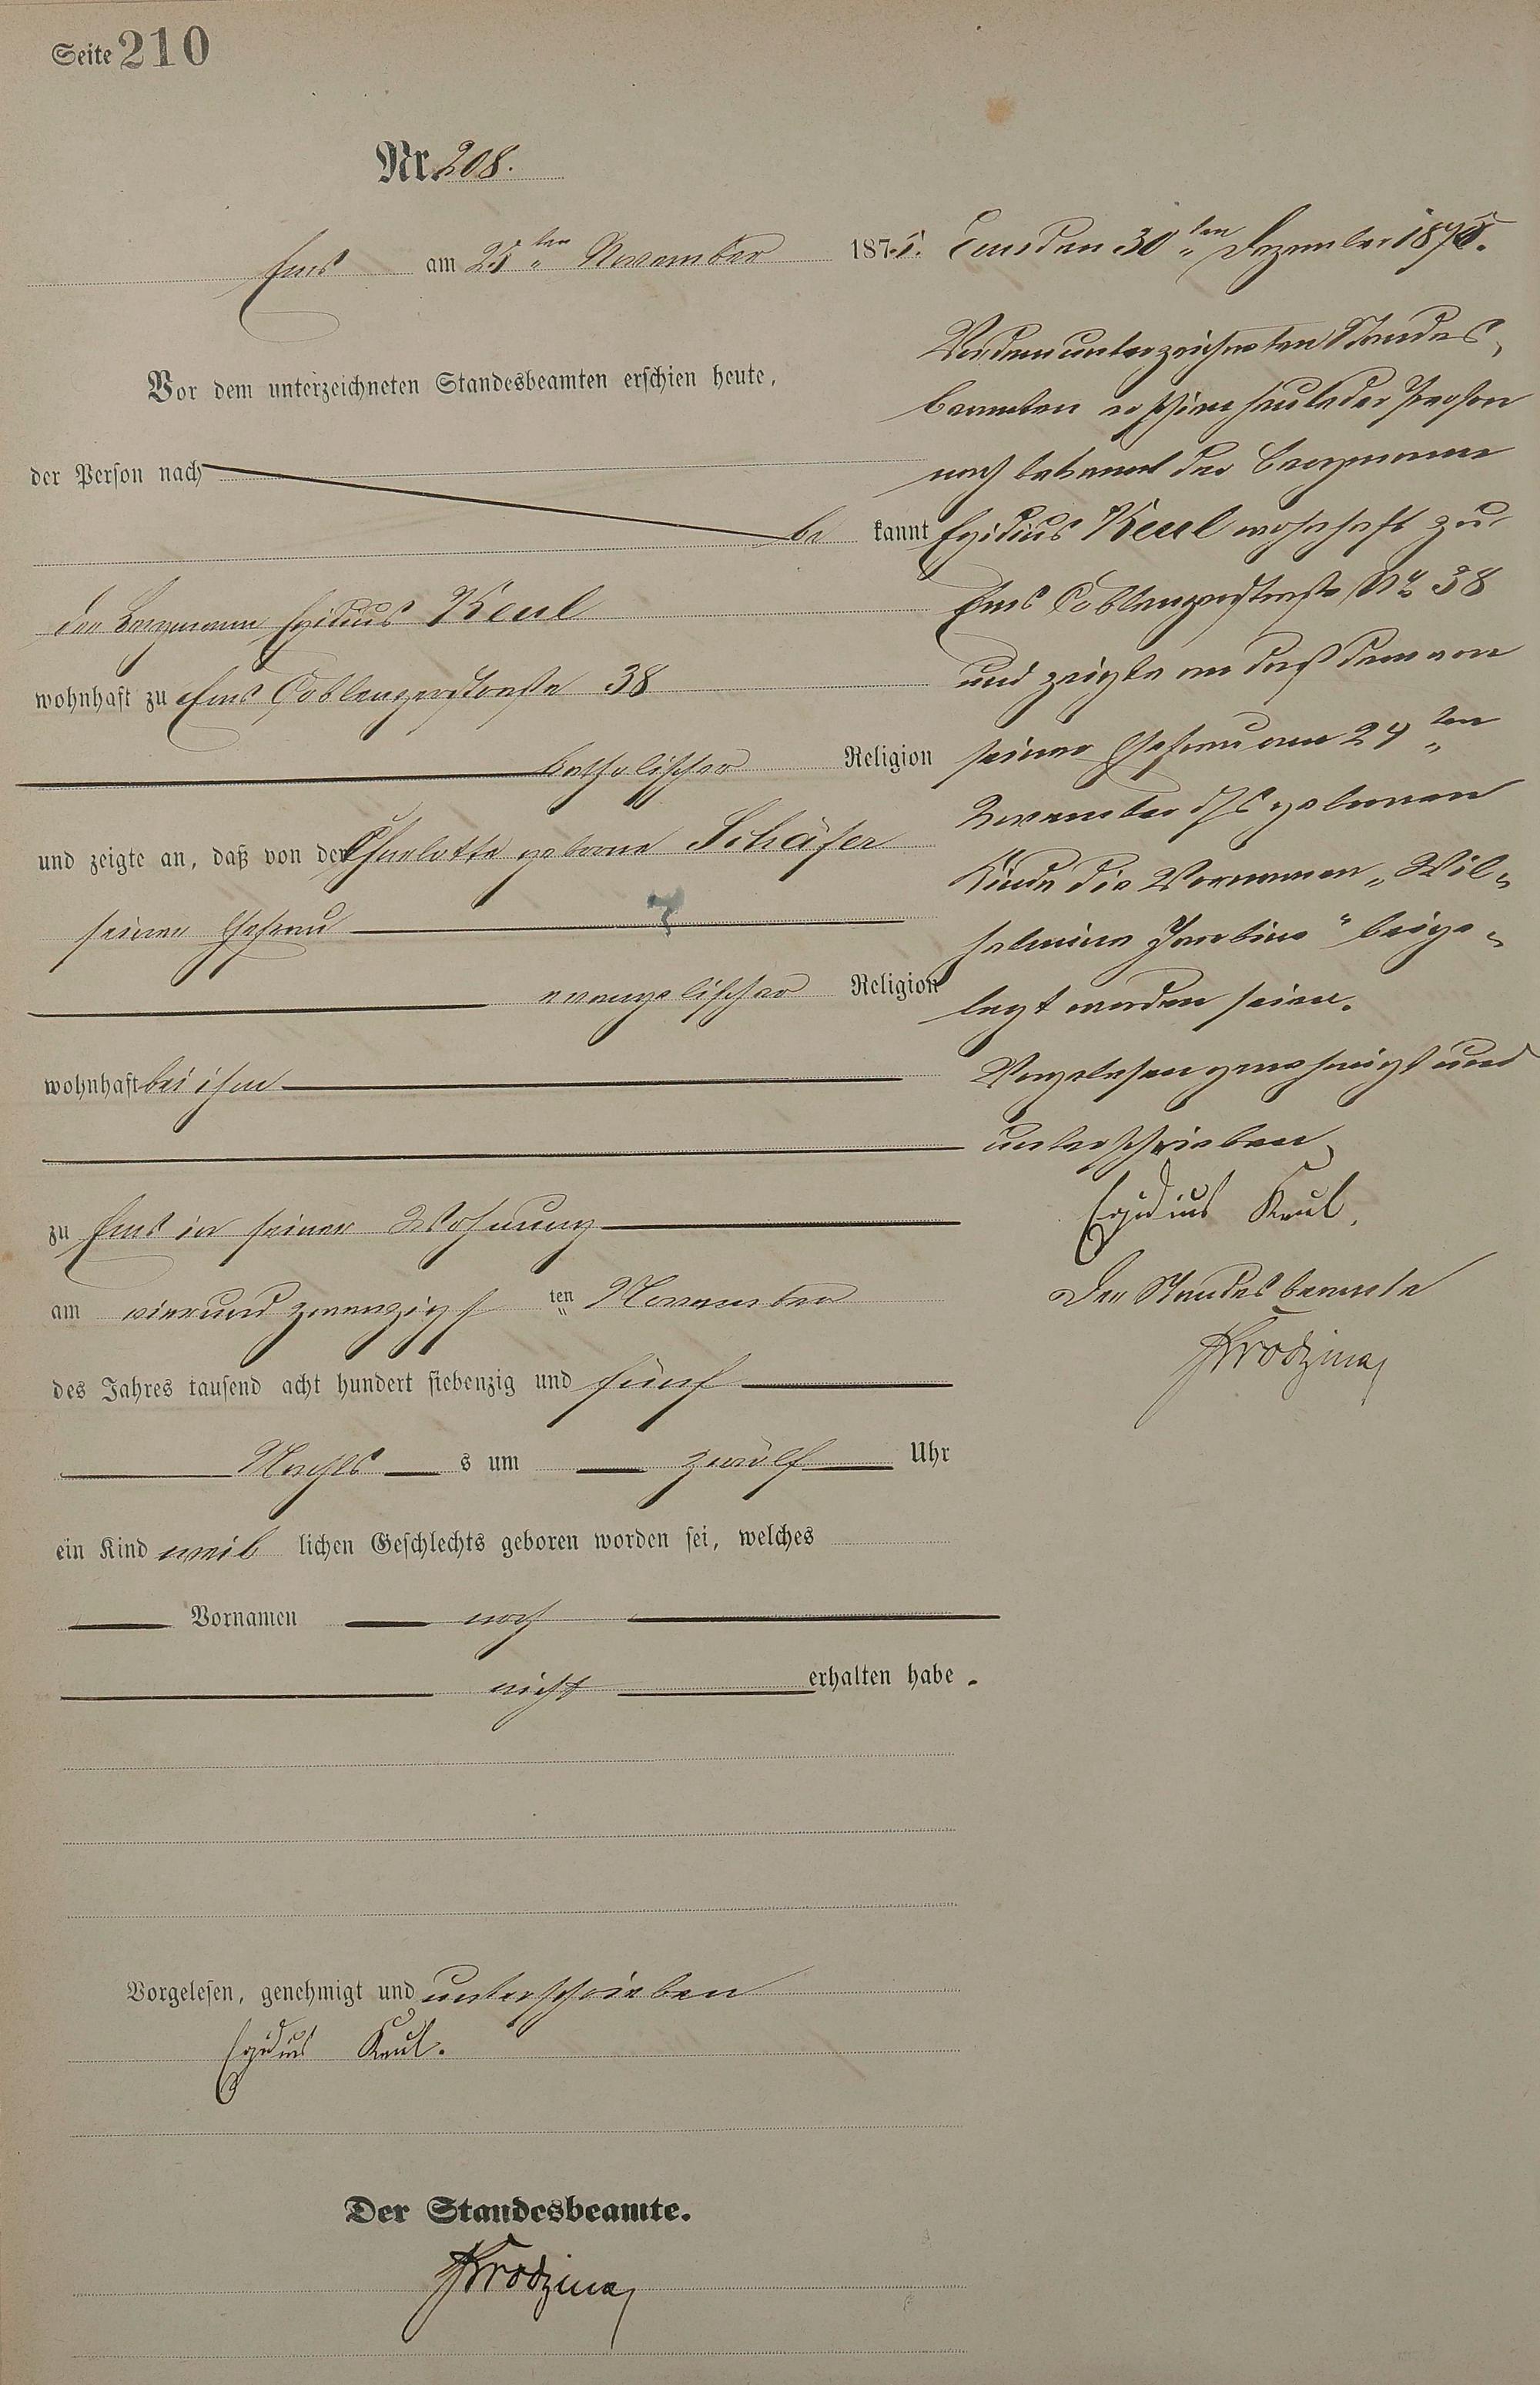 Seite 210
Nr. 208.
Ems am 25ten November 1875.
Vor dem unterzeichneten Standesbeamten erschien heute,
der Person nach
be kannt
der Bergmann Egidius Keul
wohnhaft zu Ems Coblenzerstraße 38
katholischer Religion
und zeigte an, daß von der Charlotte geborne Schäfer
seiner Ehefrau
evangelischer Religion
wohnhaft bei ihm
zu Ems in seiner Wohnung
am vierundzwanzigst ten November
des Jahres tausend acht hundert siebenzig und fünf
Nachts s um zwölf Uhr
ein Kind weib lichen Geschlechts geboren worden sei, welches
Vornamen noch
nicht erhalten habe.
Vorgelesen, genehmigt und unterschrieben
Egidius Keul.
Der Standesbeamte.
Ems den 30ten Dezember 1875.
Vor dem unterzeichneten Standes-
beamten erschien heute der Person
nach bekannt der Bergmann
Egidius Keul wohnhaft zu
Ems Coblenzerstraße No 38
und zeigte an daß dem von
seiner Ehefrau am 24ten
November d/Js geborenen
Kinde die Vornamen „Wil-
helmine Jacobine" beige-
legt worden seien.
Vorgelesen genehmigt und
unterschrieben
Egidius Keul.
Der Standesbeamte